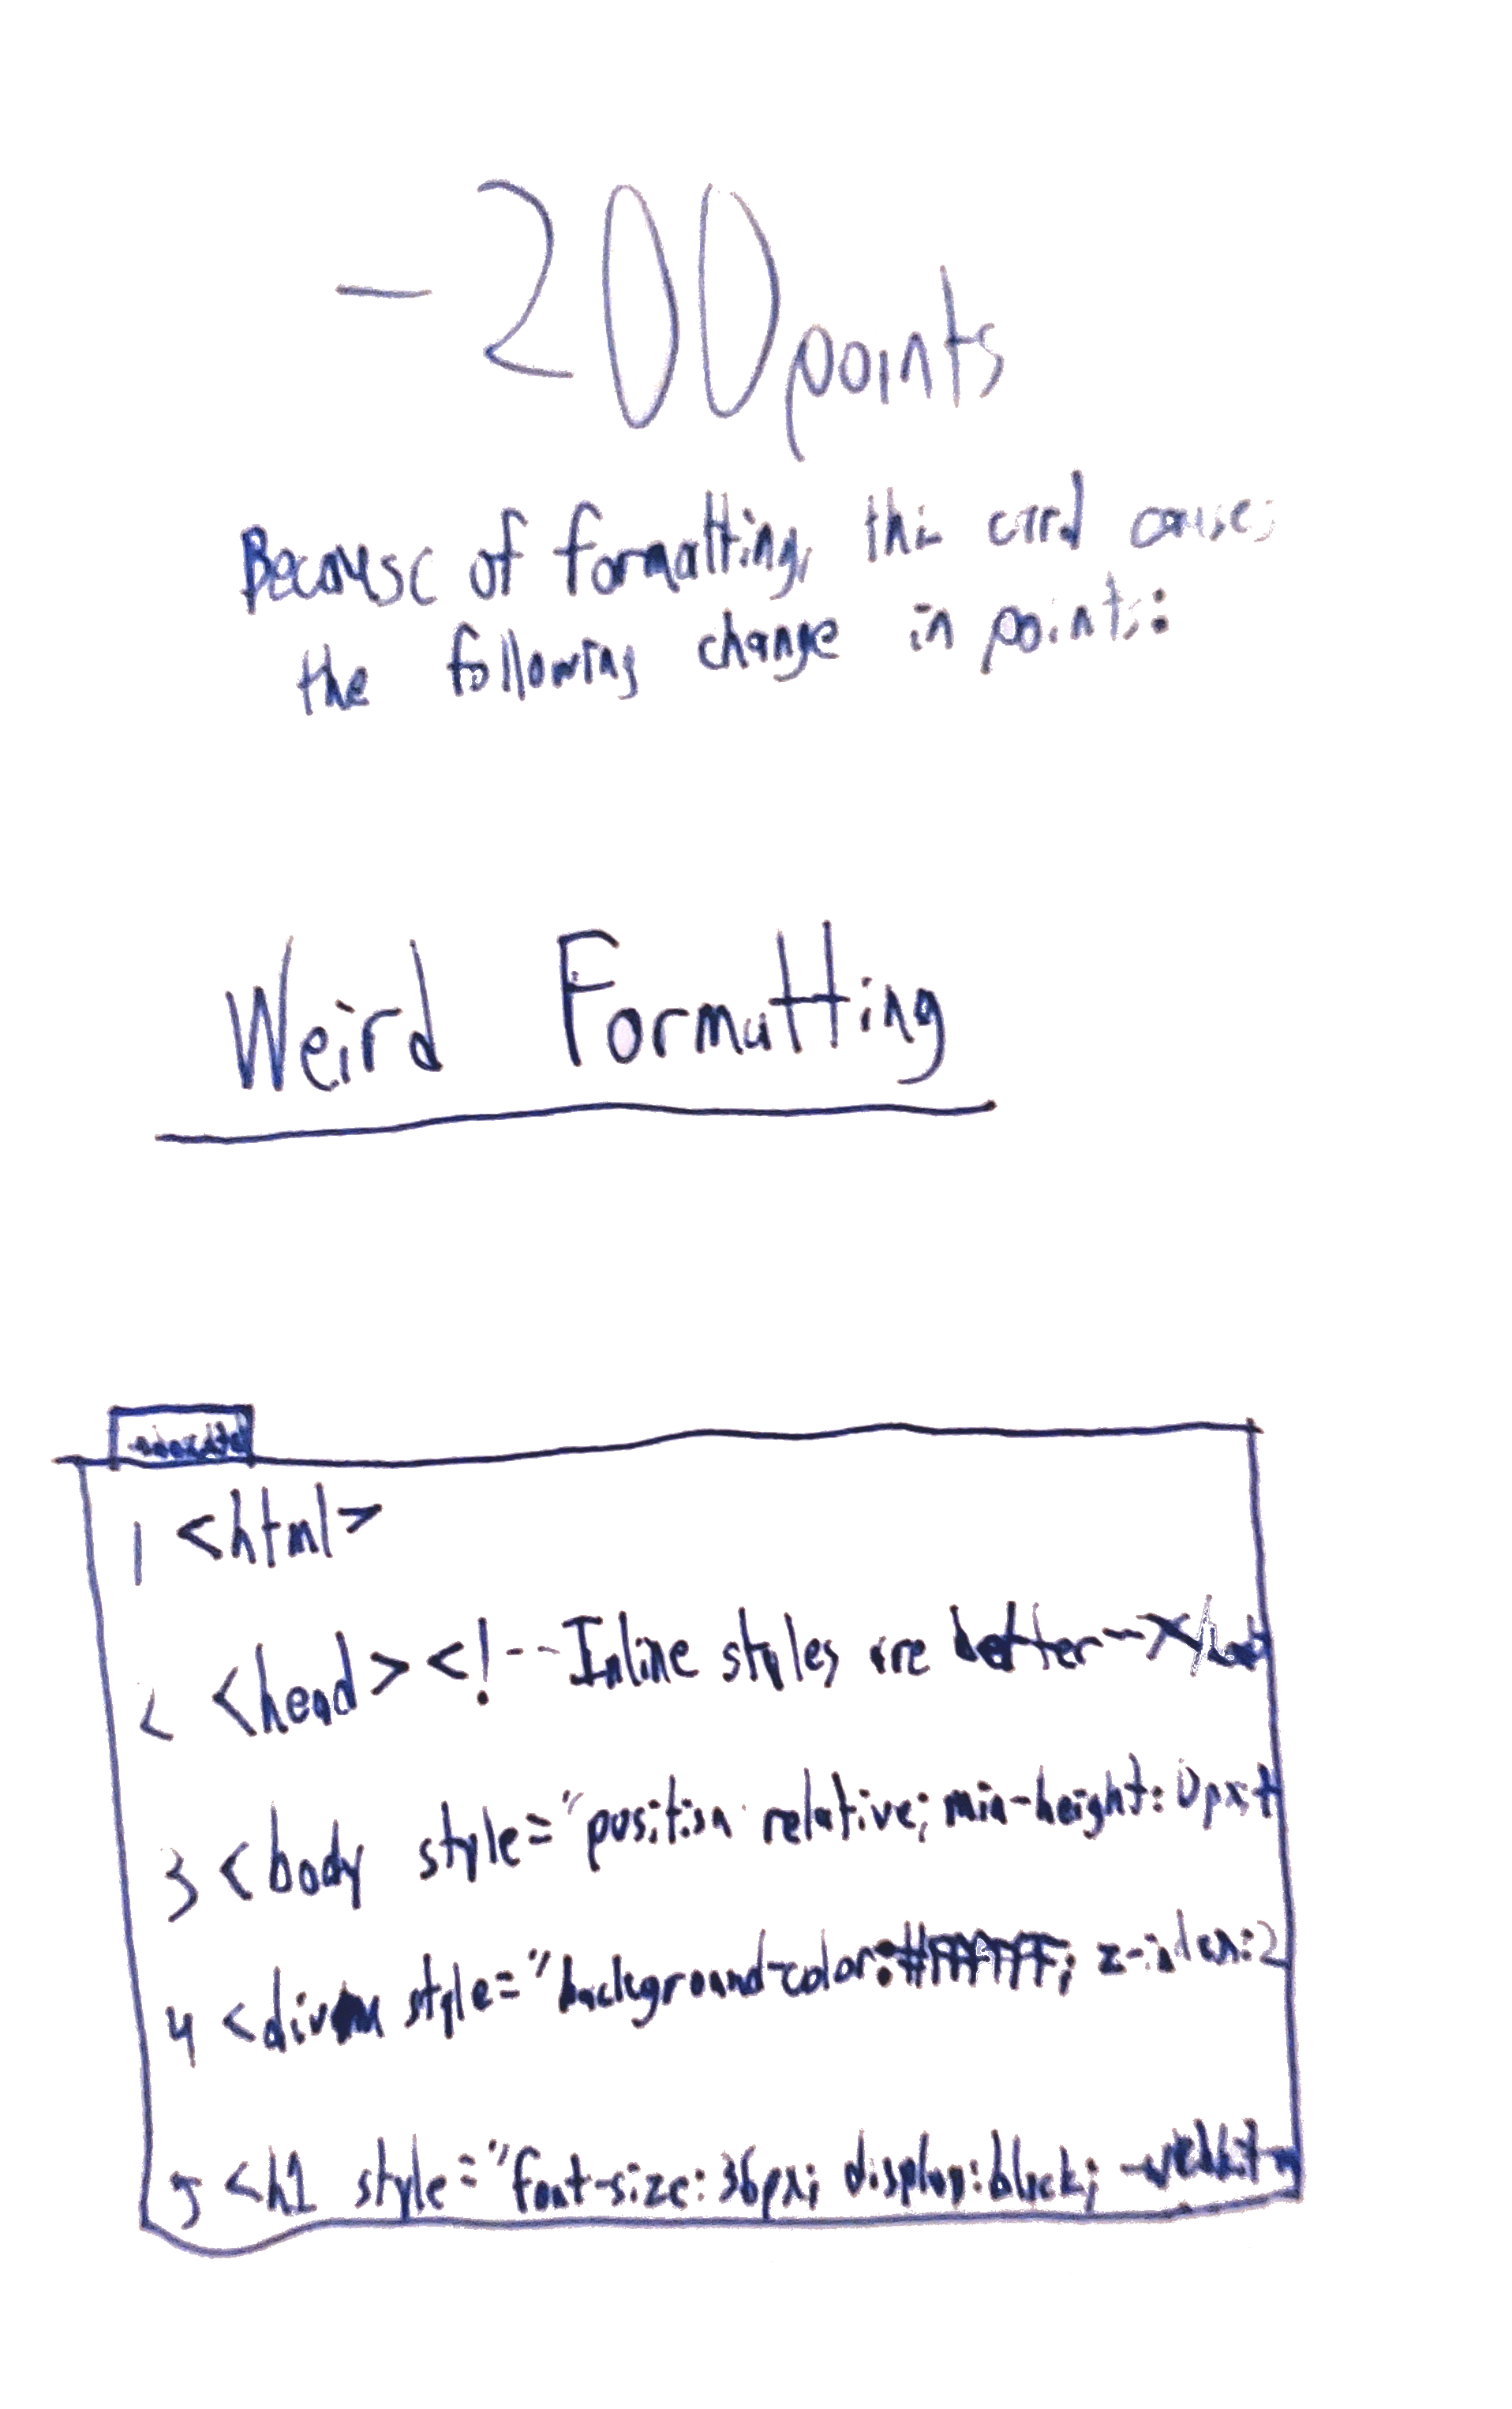 -200 points
Because of formatting, this card causes
the following change in points:
Weird Formatting
1 <html>
2 <head><!--Inline styles are better--></head
3 <body style="position: relative; min-height: 0px;
4 <div style="background-color:#FFFFFF; z-index:2
5 <h1 style="font-size: 36px; display:block; -webkit-